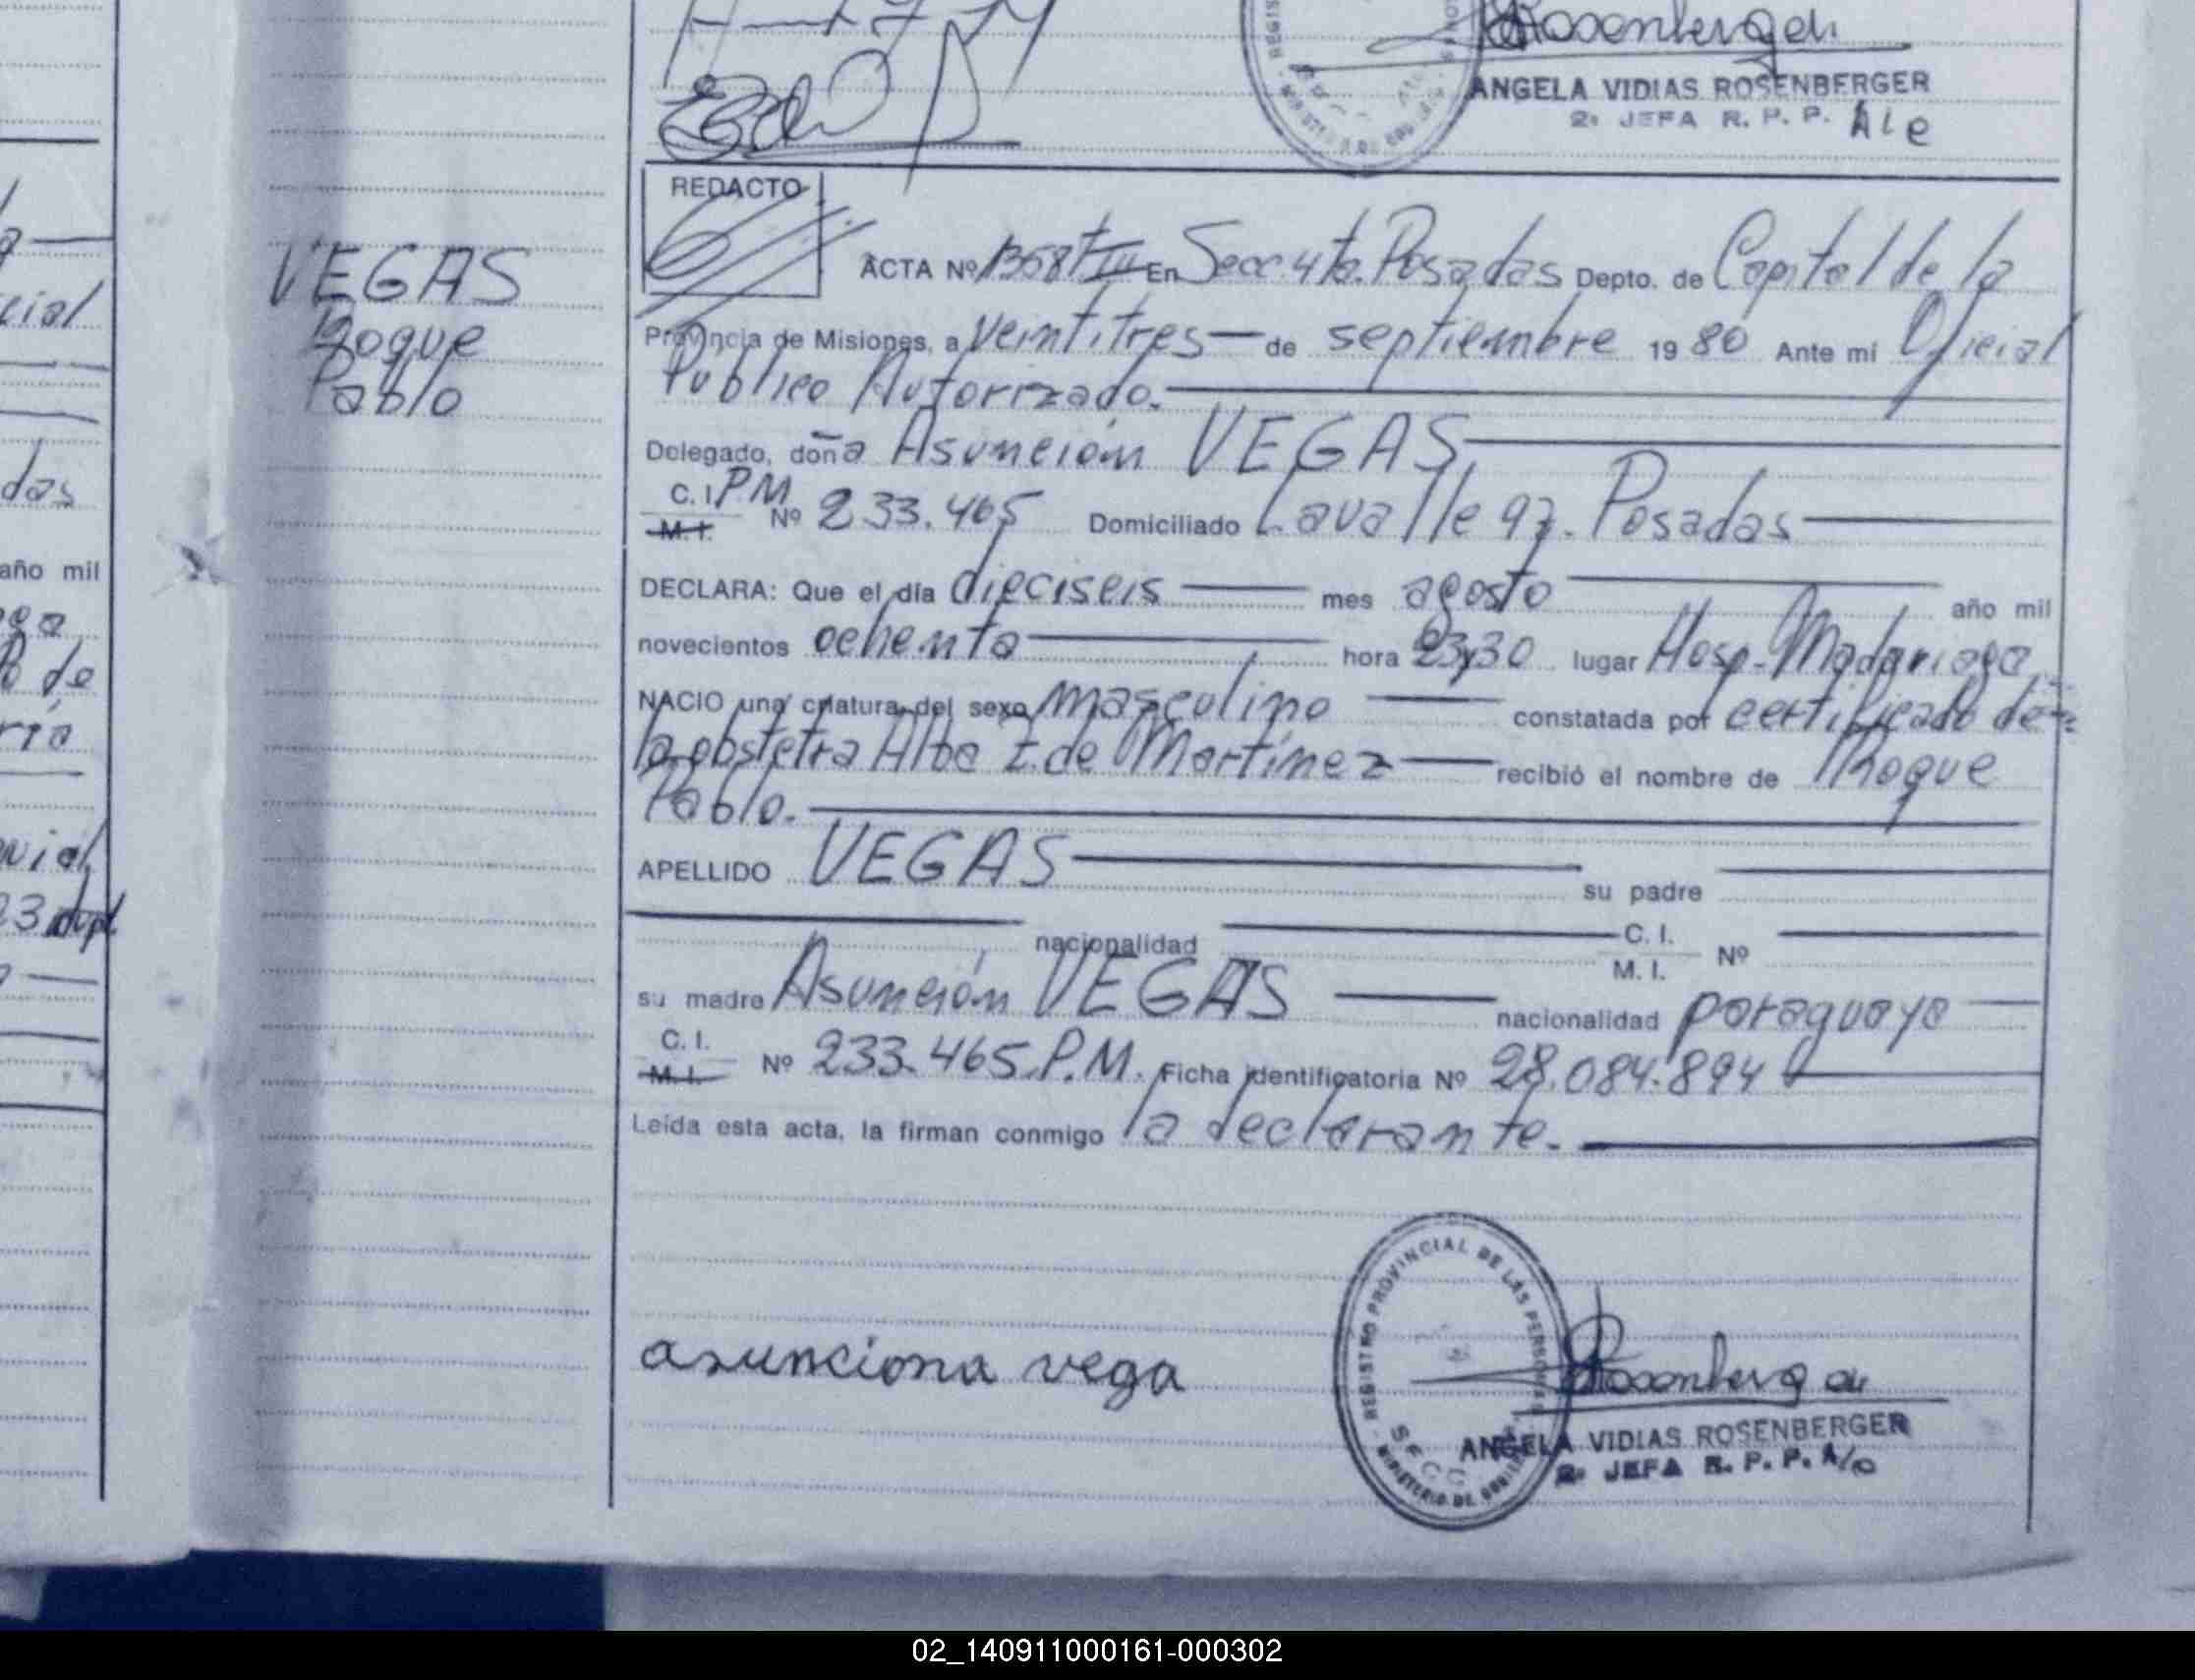 Rosenberger
ANGELA VIDIAS ROSENBERGER
2ª JEFA R. P. P. A/c
REDACTO
VEGAS
Roque
Pablo
ACTA Nº 1368 T III En Secc 4ta. Posadas Depto. de Capital de la
Provincia de Misiones, a veintitres de septiembre 19 80 Ante mi Oficial
Publico Autorizado.
Delegado, doña Asunción VEGAS
C. I. PM
M. I. Nº 233.465 Domiciliado Lavalle 97. Posadas
DECLARA: Que el día dieciseis mes agosto año mil
novecientos ochenta hora 23,30 lugar Hosp. Madariaga
NACIO una criatura del sexo masculino constatada por certificado de
la obstetra Alba Z. de Martínez recibió el nombre de Roque
Pablo.
APELLIDO VEGAS su padre
nacionalidad C. I. M. I. Nº
su madre Asunción VEGAS nacionalidad paraguaya
C. I. M. I. Nº 233.465 P.M. Ficha identificatoria Nº 28.084.894
Leída esta acta, la firman conmigo la declarante.
asunciona vega
REGISTRO PROVINCIAL DE LAS PERSONAS
MINISTERIO DE GOBIERNO
SECC
Rosenberger
ANGELA VIDIAS ROSENBERGER
2ª JEFA R. P. P. A/c
año mil
02_140911000161-000302